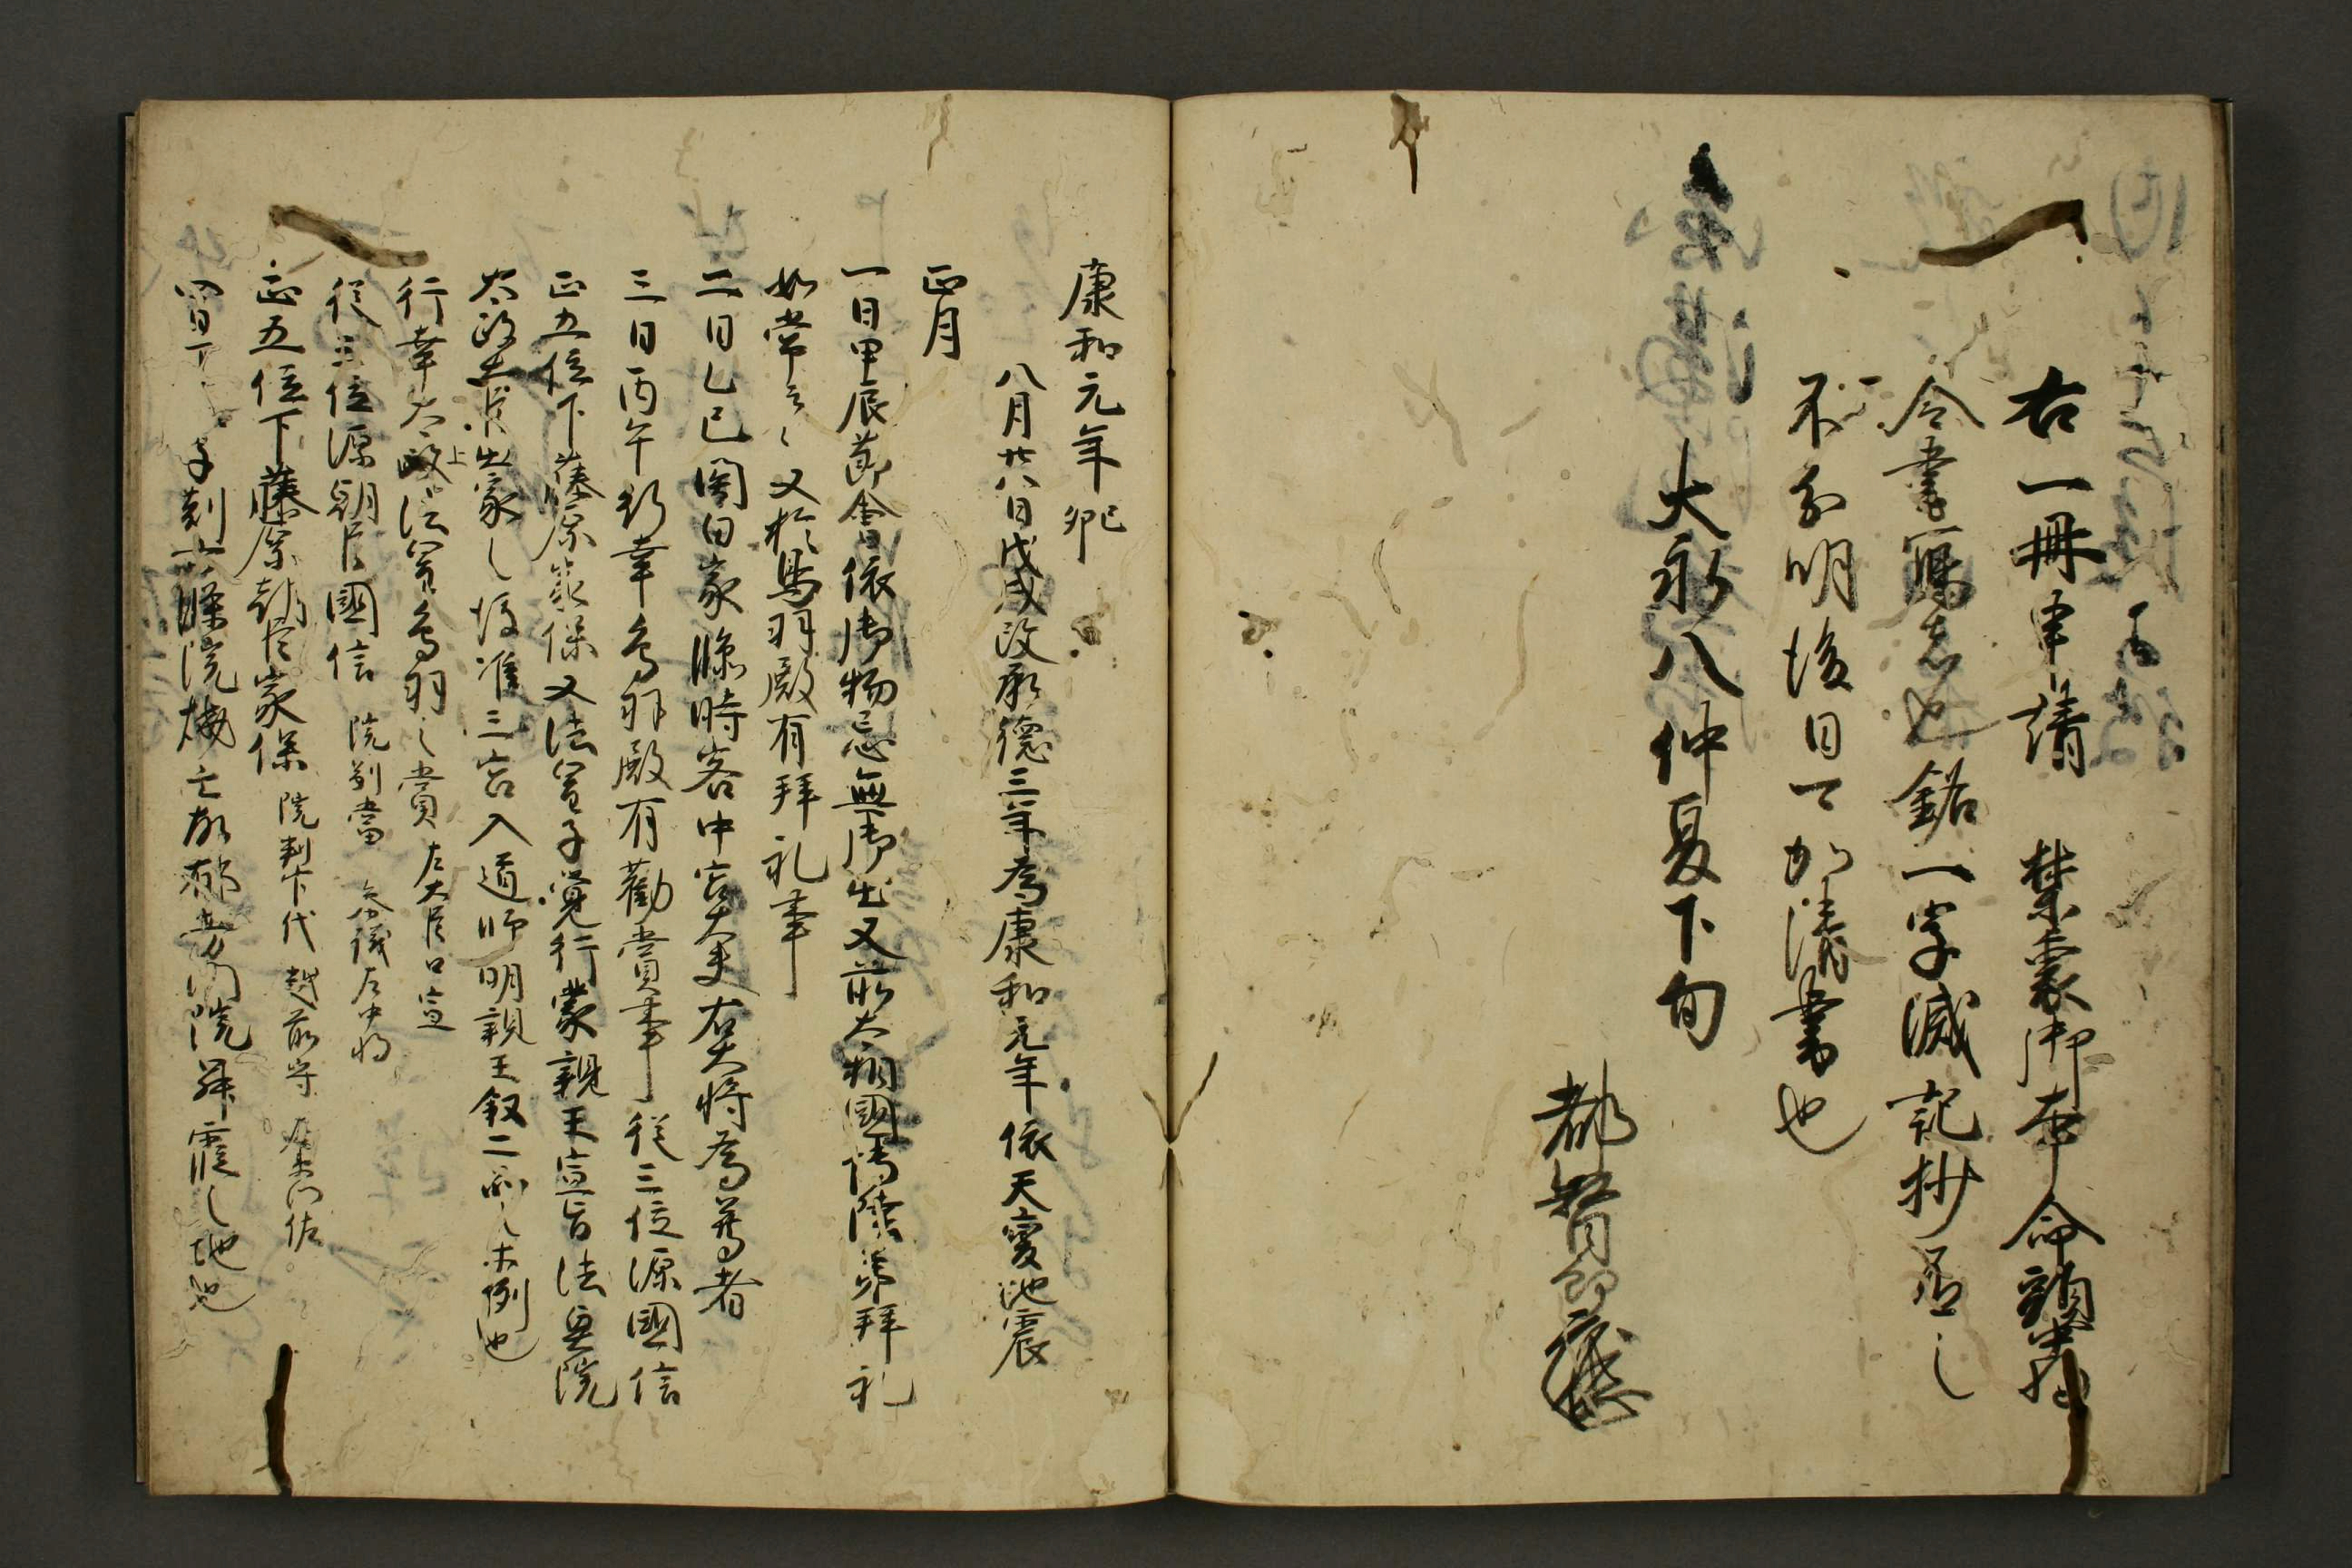 右一冊申請禁裏御本命頭
令書寫者也錯一字減記抄
不分明後日可加清書也
大永八仲夏下旬
康和元年己卯
八月廿八日戊戌改承德三年為康和元年依天變地震
正月
一日甲辰節會依御物忌無御出又前太相國拜礼
如常云々又於鳥羽殿有拜礼事
二日乙巳關白家臨時客中宮大夫右大將為尊者
三日丙午行幸鳥羽殿有勸賞事從三位源國信
正五位下藤原家保又法皇子覺行蒙親王宣旨法皇院
太政大臣出家之後准三宮入道師明親王叙二品之等例也
行幸太上法皇鳥羽之賞左大臣口宣
從三位源朝臣國信院別當參議左中將
正五位下藤原朝臣家保院判官代越前守左衛門佐
四日丁未子刻六條院燒亡故郁芳門院昇霞之地也